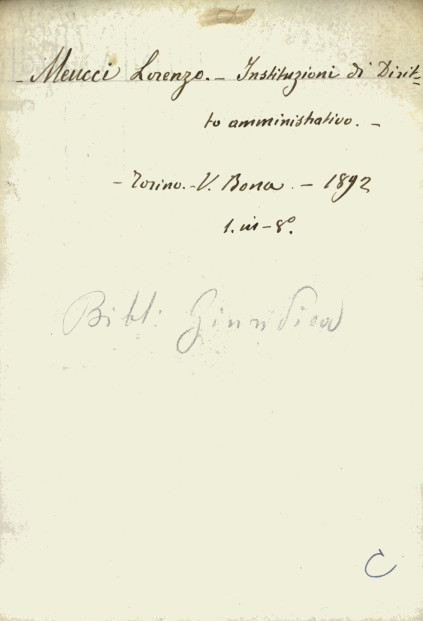 - Meucci Lorenzo. - Instituzioni di Dirit-
to amministrativo. -
- Torino. - V. Bona. - 1892
1. in - 8°.
Bibl. Giuridica
C